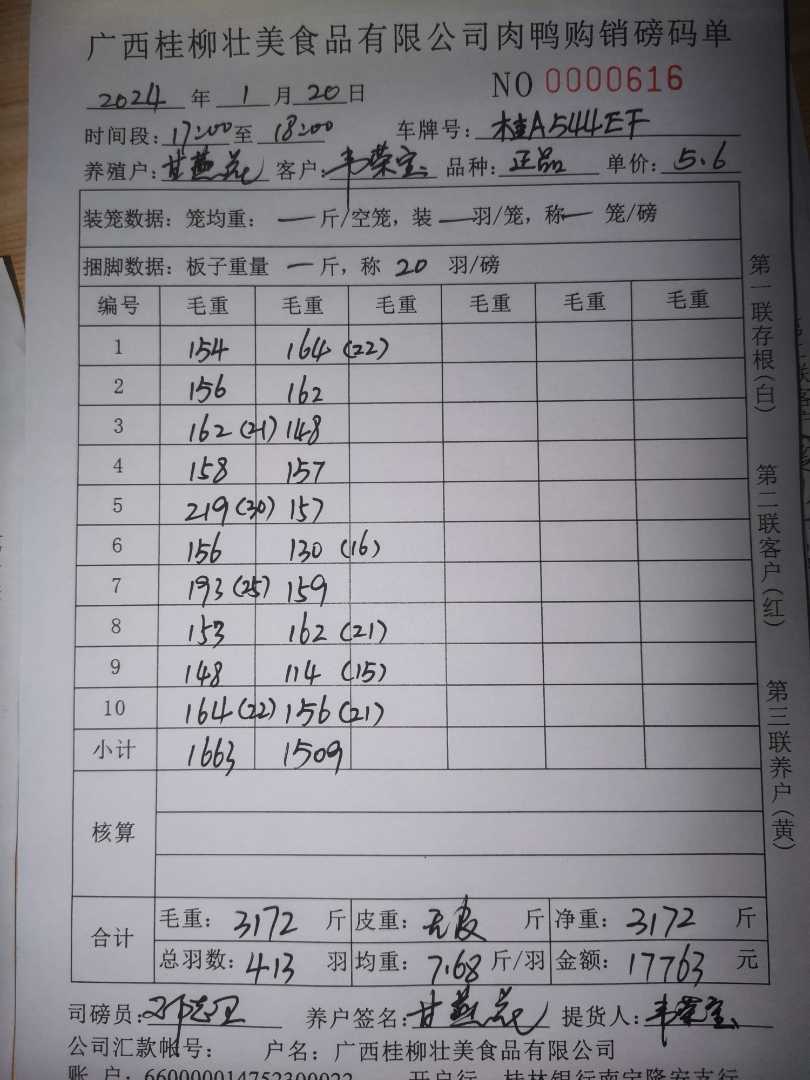 广西桂柳壮美食品有限公司肉鸭购销磅码单
2024 年 1 月 20 日 NO 0000616
时间段: 17:00 至 18:00 车牌号: 桂A544EF
养殖户: 甘燕花 客户: 韦荣宝 品种: 正品 单价: 5.6
装笼数据: 笼均重: — 斤/空笼, 装 — 羽/笼, 称 — 笼/磅
捆脚数据: 板子重量 — 斤, 称 20 羽/磅
编号 毛重 毛重 毛重 毛重 毛重 毛重
1 154 164 (22)
2 156 162
3 162 (21) 148
4 158 157
5 219 (30) 157
6 156 130 (16)
7 193 (25) 159
8 153 162 (21)
9 148 114 (15)
10 164 (22) 156 (21)
小计 1663 1509
核算
合计
毛重: 3172 斤 皮重: 无皮 斤 净重: 3172 斤
总羽数: 413 羽 均重: 7.68 斤/羽 金额: 17763 元
司磅员: 养户签名: 甘燕花 提货人: 韦荣宝
公司汇款帐号: 户名: 广西桂柳壮美食品有限公司
账 户: 660000014752300022 开户行 桂林银行南宁隆安支行
第一联存根(白)
第二联客户(红)
第三联养户(黄)